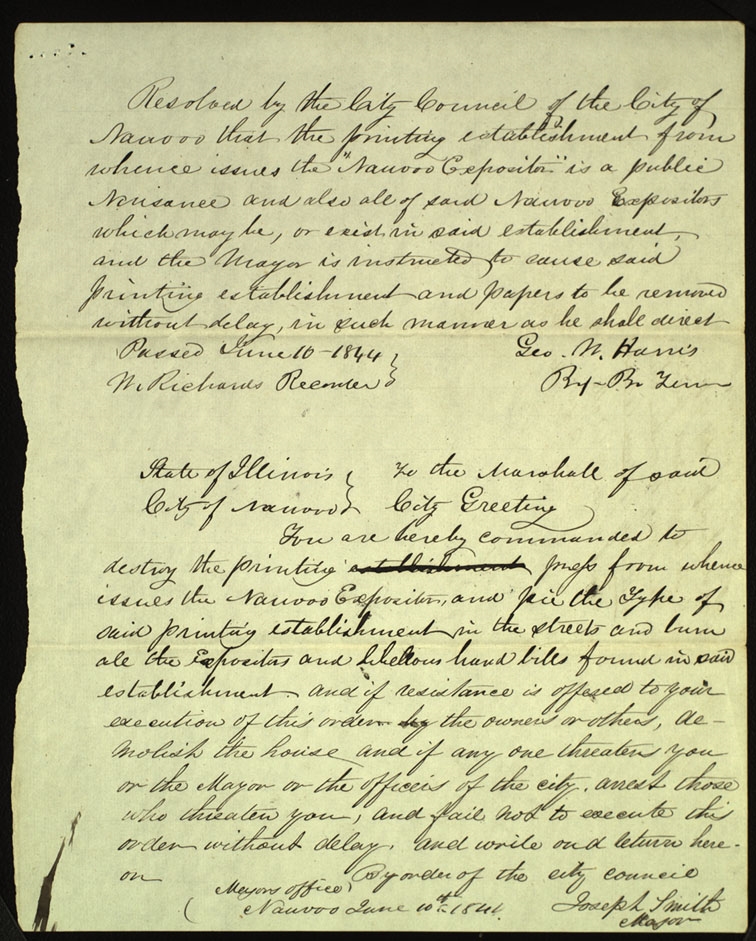 Resolved by the City Council of the City of
Nauvoo that the printing establishment from
whence issues the "Nauvoo Expositor" is a public
Nuisance and also all of said Nauvoo Expositors
which may be, or exist in said establishment,
and the Mayor is instructed to cause said
printing establishment and papers to be removed
without delay, in such manner as he shall direct
Passed June 10-1844 } Geo. W. Harris
W. Richards Recorder } 
State of Illinois } To the Marshall of said
City of Nauvoo } City Greeting
You are hereby commanded to
destroy the printing establishment press from whence
issues the Nauvoo Expositor, and pie the Type of
said printing establishment in the streets and burn
all the Expositors and libellous hand bills found in said
establishment and if resistance is offered to your
execution of this order by the owners or others, de-
molish the house and if any one threatens you
or the Mayor or the officers of the city, arrest those
who threaten you, and fail not to execute this
order without delay, and due return here-
on By order of the city council
Mayors office
Nauvoo June 10th 1844 Joseph Smith
Mayor